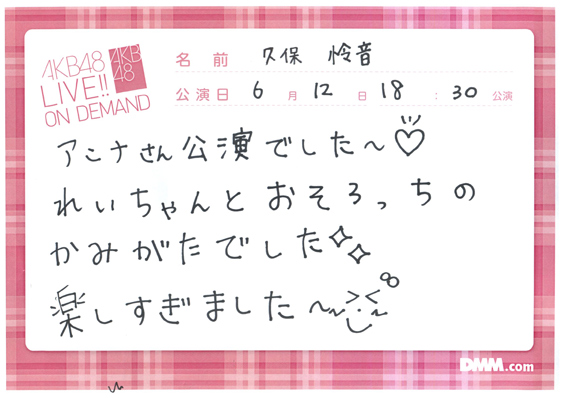 AKB48
LIVE!!
ON DEMAND
AKB
48
名前 久保 怜音
公演日 6月12日 18:30公演
アンナさん公演でした〜♡
れいちゃんとおそろっちの
かみがたでした✧✧
楽しすぎました〜〜
DMM.com